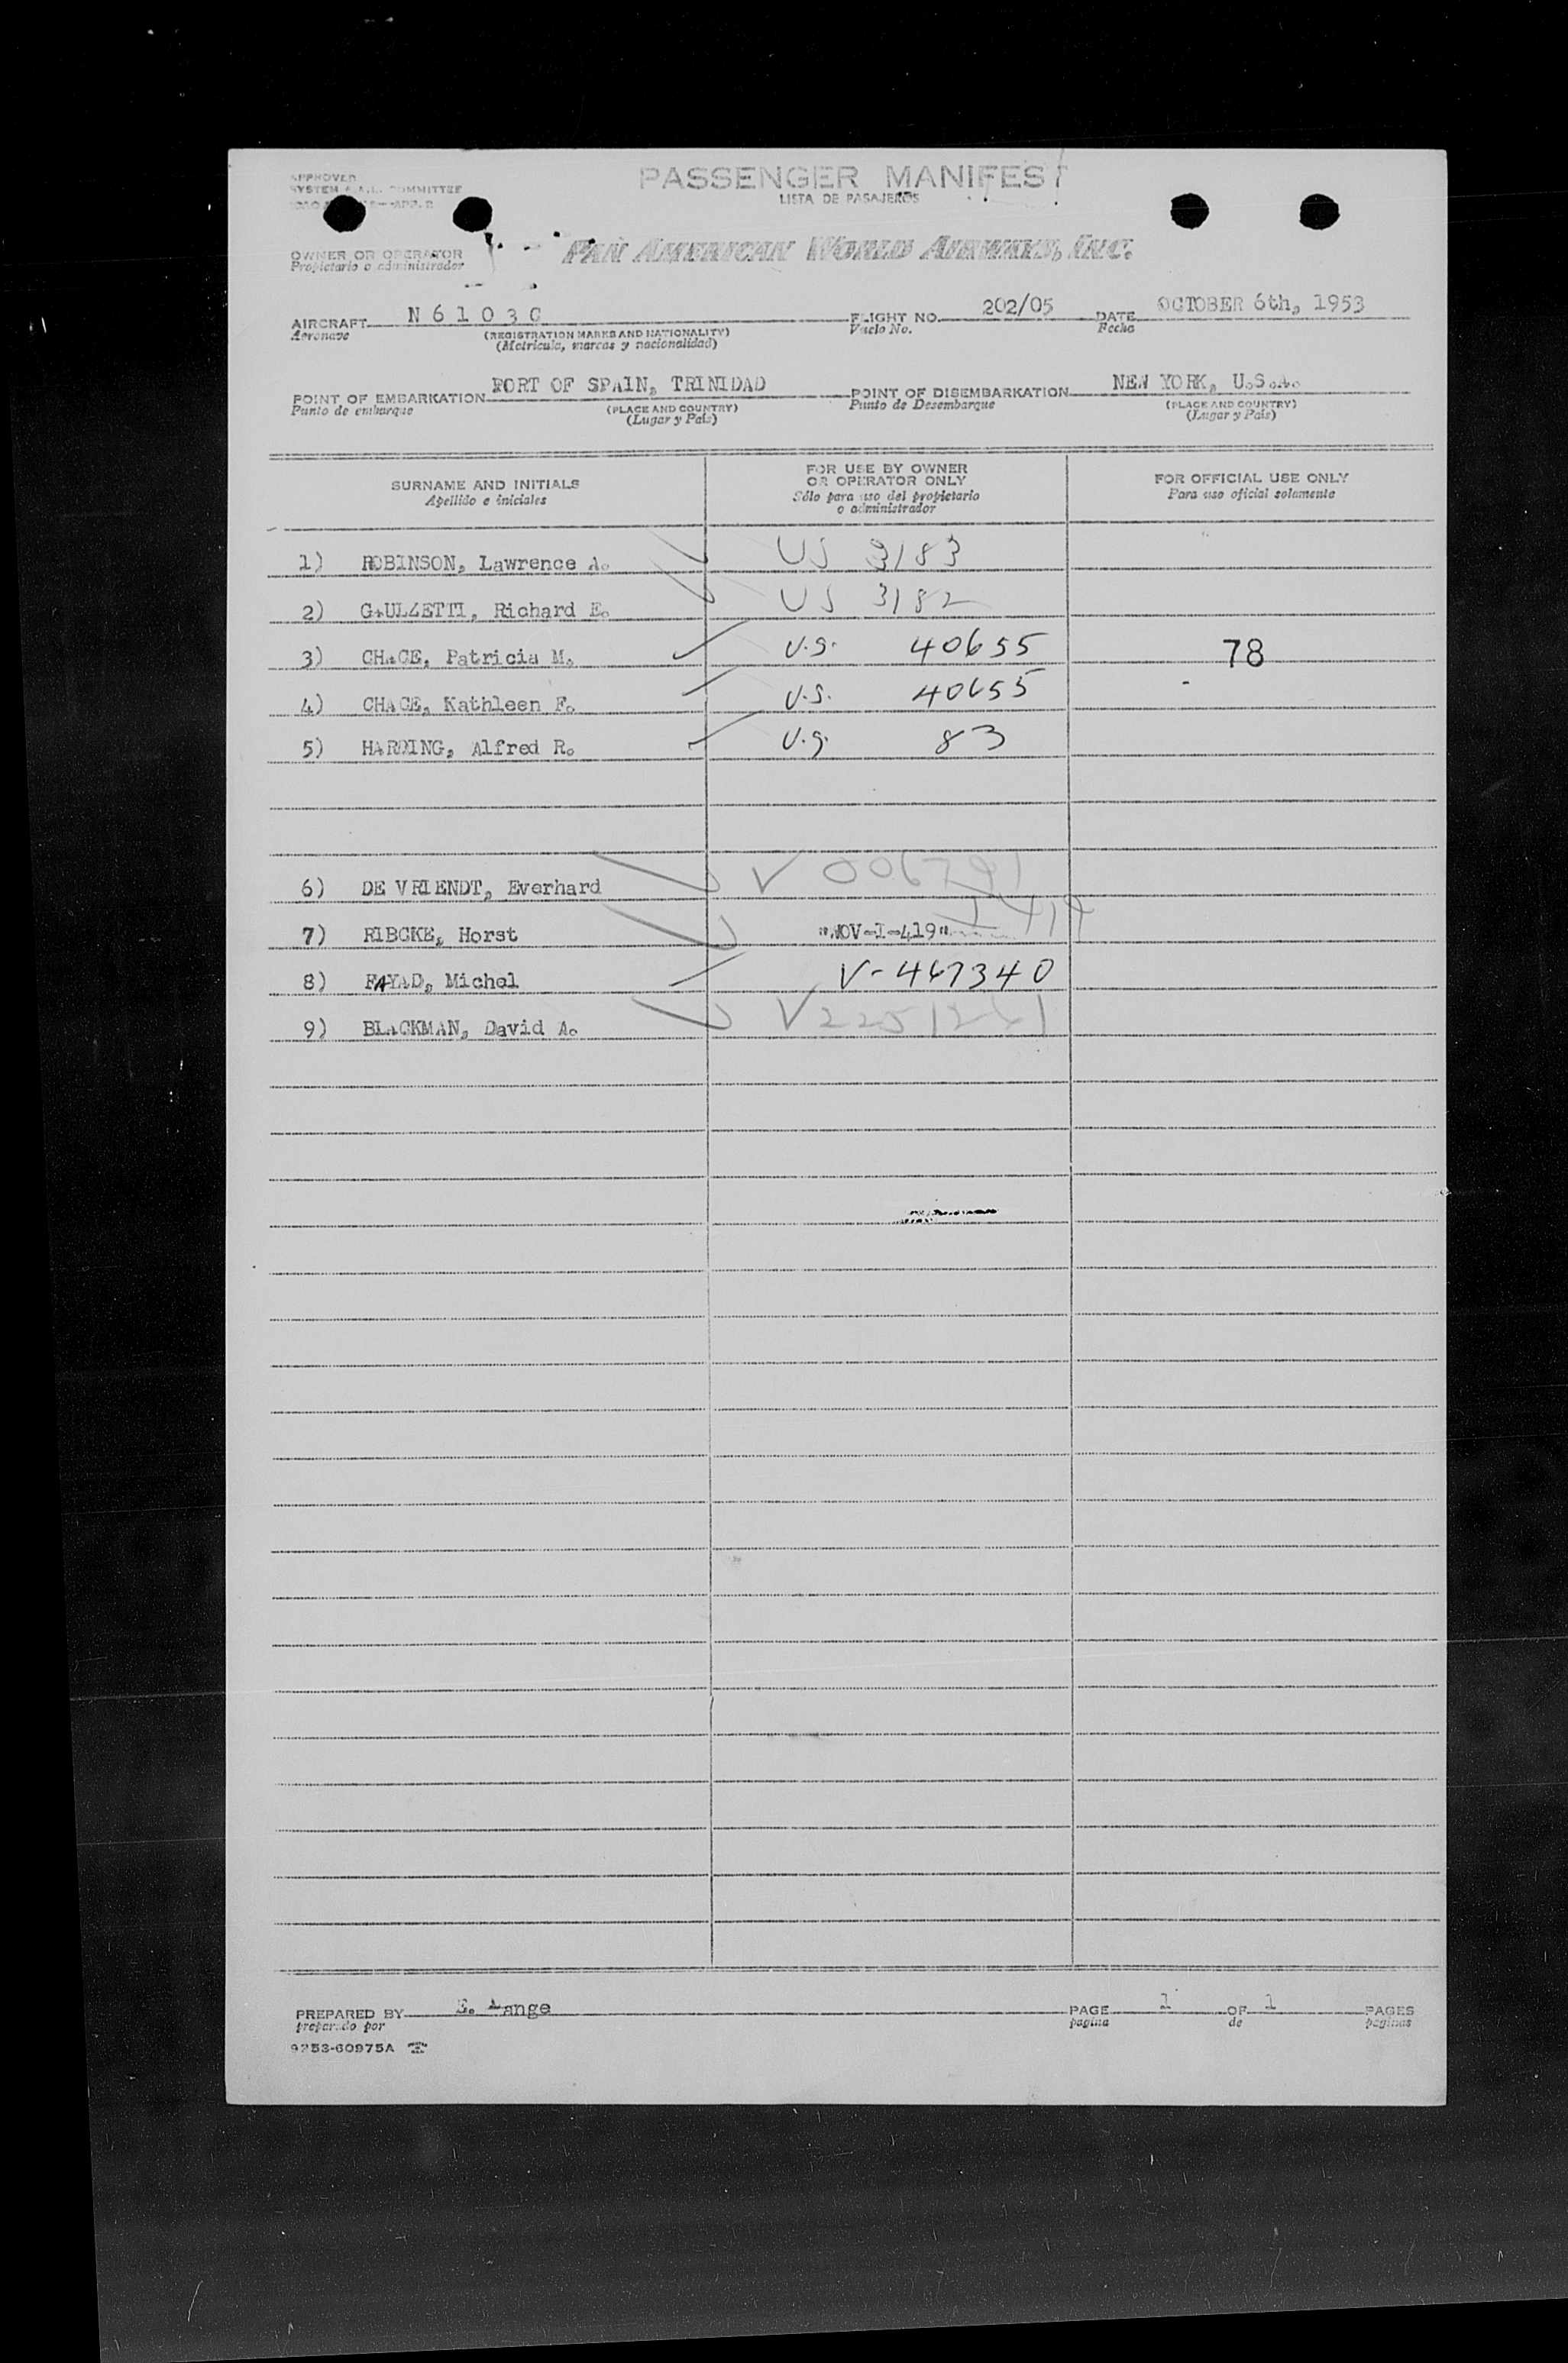 APPROVED
SYSTEM COMMITTEE
PASSENGER MANIFEST
LISTA DE PASAJEROS
OWNER OR OPERATOR
Propietario o administrador
PAN AMERICAN WORLD AIRWAYS, INC.
AIRCRAFT N 6 1 0 3 C FLIGHT NO. 202/05 DATE OCTOBER 6th, 1953
Aeronave (REGISTRATION MARKS AND NATIONALITY) Vuelo No. Fecha
(Matricula, marcas y nacionalidad)
POINT OF EMBARKATION PORT OF SPAIN, TRINIDAD POINT OF DISEMBARKATION NEW YORK, U.S.A.
Punto de embarque (PLACE AND COUNTRY) Punto de Desembarque (PLACE AND COUNTRY)
(Lugar y País) (Lugar y País)
SURNAME AND INITIALS
Apellido e iniciales
FOR USE BY OWNER
OR OPERATOR ONLY
Sólo para uso del propietario
o administrador
FOR OFFICIAL USE ONLY
Para uso oficial solamente
1) ROBINSON, Lawrence A. US 3183
2) GAULZETTI, Richard E. US 3182
3) CHACE, Patricia M. U.S. 40655 78
4) CHACE, Kathleen F. U.S. 40655
5) HARDING, Alfred R. U.S. 83
6) DE VRIENDT, Everhard V 006791
7) RIBCKE, Horst "NOV-I-419" I 419
8) FAYAD, Michel V-467340
9) BLACKMAN, David A.
PREPARED BY E. Lange PAGE 1 OF 1 PAGES
preparado por pagina de paginas
9253-60975A